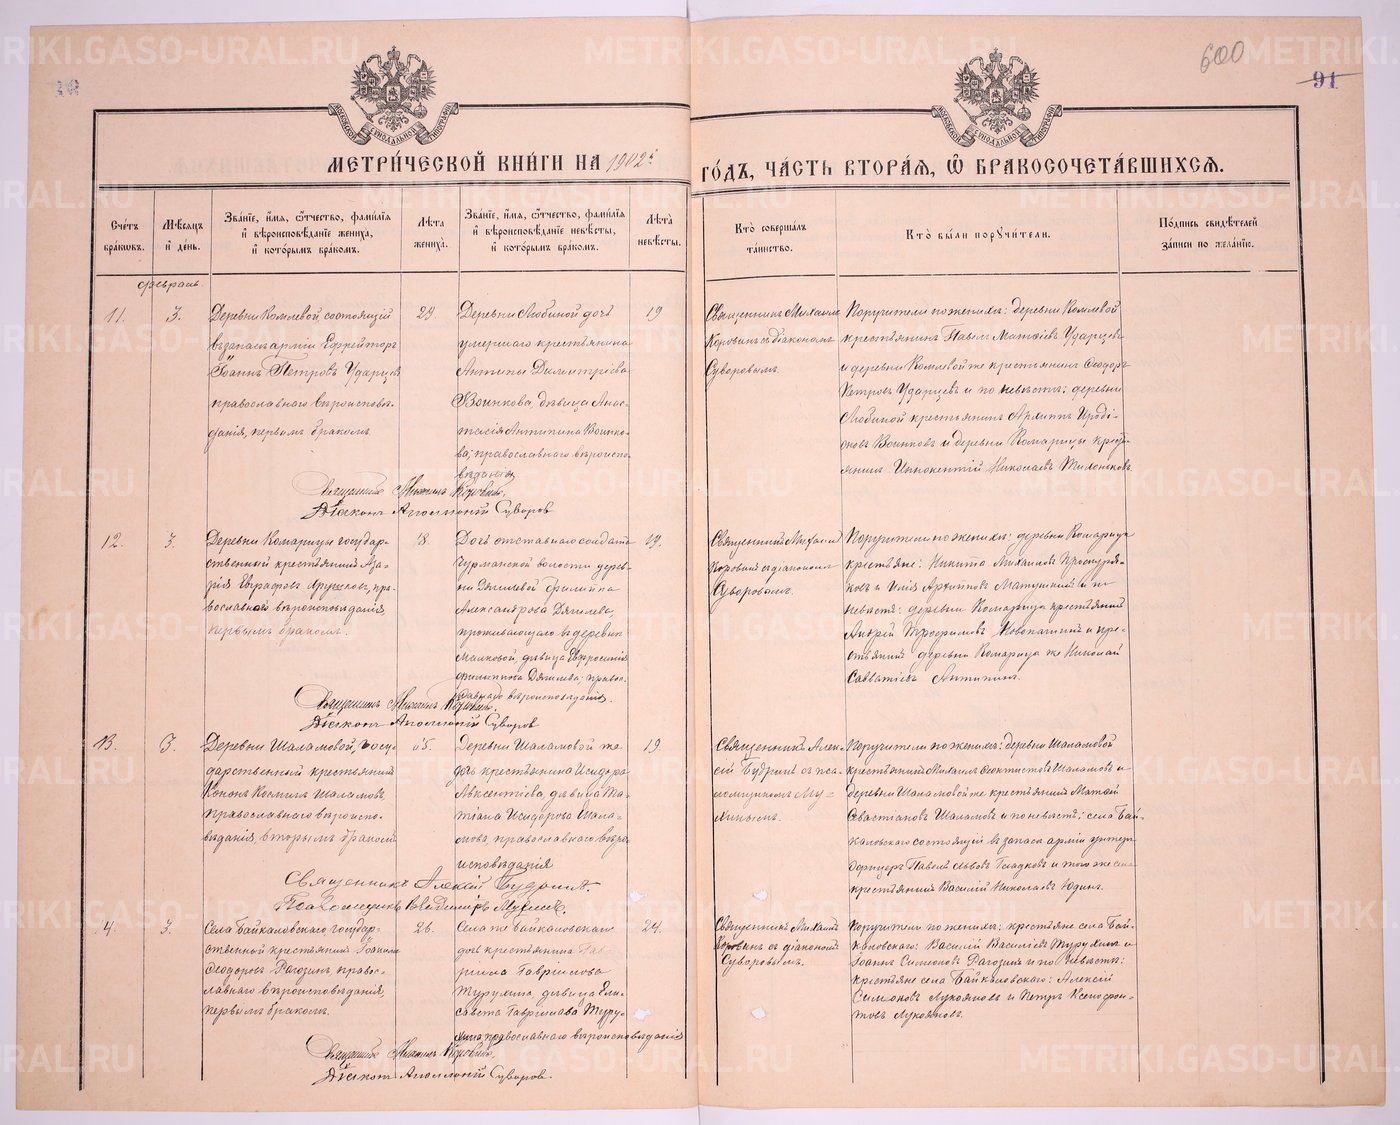 600
91
МЕТРИ́ЧЕСКОЙ КНИ́ГИ НА 1902й ГО́ДЪ, ЧА́СТЬ ВТОРА́Я, Ѽ БРАКОСОЧЕТА́ВШИХСЯ.
Сче́тъ бра́кѡвъ.
Мѣ́сяцъ и҆ де́нь.
Зва́нїе, и҆́мя, ѻ҆́тчество, фами́лїя и҆ вѣроисповѣ́данїе жениха̀, и҆ кото́рымъ бра́комъ.
Лѣ́та жениха̀.
Зва́нїе, и҆́мя, ѻ҆́тчество, фами́лїя и҆ вѣроисповѣ́данїе невѣ́сты, и҆ кото́рымъ бра́комъ.
Лѣ́та невѣ́сты.
Кто̀ соверша́лъ та́инство.
Кто̀ бы́ли порꙋчи́тели.
По́дпись свидѣ́телей за́писи по жела́нїю.
февраль.
11.
3.
Деревни Комлевой, состоящій
въ запасѣ арміи Ефрейторъ
Іоаннъ Петровъ Ударцевъ
православнаго вѣроисповѣ-
данія, первымъ бракомъ.
Деревни Любиной дочь
умершаго крестьянина
Антипы Димитріева
Воинкова, дѣвица Анас-
тасія Антипина Воинко-
ва, православнаго вѣроиспо-
вѣданія
19
Священникъ Михаилъ
Коровинъ съ діакономъ
Суворовымъ.
Поручители по женихѣ: деревни Комлевой
крестьянинъ Павелъ Матѳіевъ Ударцевъ
и деревни Комлевой же крестьянинъ Ѳеодоръ
Петровъ Ударцевъ и по невѣстѣ: деревни
Любиной крестьянинъ Архиппъ Иродi-
оновъ Воинковъ и деревни Комарицы кресть-
янинъ Иннокентій Николаевъ
Священникъ Михаилъ Коровинъ.
Діаконъ Аполлоній Суворовъ
12.
3.
Деревни Комарицы государ-
ственный крестьянинъ Аза-
рія Евграфовъ пра-
вославнаго вѣроисповѣданія
первымъ бракомъ.
18.
Дочь отставнаго солдата
волости дерев-
ни Дягилевой Филиппа
Александрова Дягилева
проживающаго въ деревнѣ
Малковой, дѣвица Евфросинія
Филиппова Дягилева, право-
славнаго вѣроисповѣданія.
19.
Священникъ Михаилъ
Коровинъ съ діакономъ
Суворовымъ.
Поручители по женихѣ: деревни Комарицы
крестьяне: Никита Михаиловъ
и Илія Архиповъ и по
невѣстѣ: деревни Комарицы крестьянинъ
Андрей Трофимовъ Новопашинъ и кре-
стьянинъ деревни Комарицы же Николай
Савватіевъ Антипинъ.
Священникъ Михаилъ Коровинъ.
Діаконъ Аполлоній Суворовъ
13.
3.
Деревни Шаламовой, госу-
дарственный крестьянинъ
Кононъ Косминъ Шаламовъ,
православнаго вѣроиспо-
вѣданія, вторымъ бракомъ
Деревни Шаламовой же
дочь крестьянина Исидора
Авксентіева, дѣвица Та-
тіана Исидорова Шала-
мова, православнаго вѣро-
исповѣданія
19.
Священникъ Алек-
сій Будринъ съ пса-
ломщикомъ Му-
хинымъ.
Поручители по женихѣ: деревни Шаламовой
крестьянинъ Михаилъ Ѳеоктистовъ Шаламовъ и
деревни Шаламовой же крестьянинъ Матѳей
Севастіановъ Шаламовъ и по невѣстѣ: села Бай-
каловскаго состоящій въ запасѣ арміи унтеръ
офицеръ Павелъ Львовъ Гладковъ и того же села
крестьянинъ Василій Николаевъ Юдинъ.
Священникъ Алексій Будринъ
Псаломщикъ Владиміръ Мухинъ.
14.
3.
Села Байкаловскаго государ-
ственный крестьянинъ Іоаннъ
Ѳеодоровъ Рагозинъ, право-
славнаго вѣроисповѣданія,
первымъ бракомъ.
26.
Села же Байкаловскаго
дочь крестьянина Гав-
ріила Гавріилова
Турухина, дѣвица Ели-
савета Гавріилова Туру-
хина православнаго вѣроисповѣданія
24.
Священникъ Михаилъ
Коровинъ съ діакономъ
Суворовымъ.
Поручители по женихѣ: крестьяне села Бай-
каловскаго: Василій Василіевъ Турухинъ и
Іоаннъ Симеоновъ Рагозинъ и по невѣстѣ:
крестьяне села Байкаловскаго: Алексій
Симеоновъ Лукояновъ и Петръ Ксенофон-
товъ Лукояновъ.
Священникъ Михаилъ Коровинъ.
Діаконъ Аполлоній Суворовъ.
METRIKI.GASO-URAL.RU